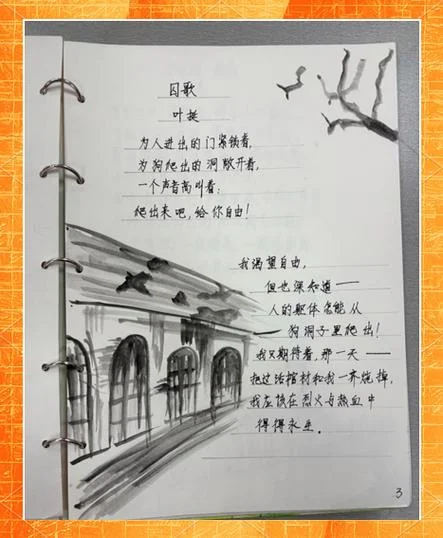 囚歌
叶挺
为人进出的门紧锁着,
为狗爬出的洞敞开着,
一个声音高叫着:
爬出来吧,给你自由!
我渴望自由,
但也深知道——
人的躯体怎能从
狗洞子里爬出!
我只期待着,那一天——
把这活棺材和我一齐烧掉,
我应该在烈火与热血中
得得永生。
3